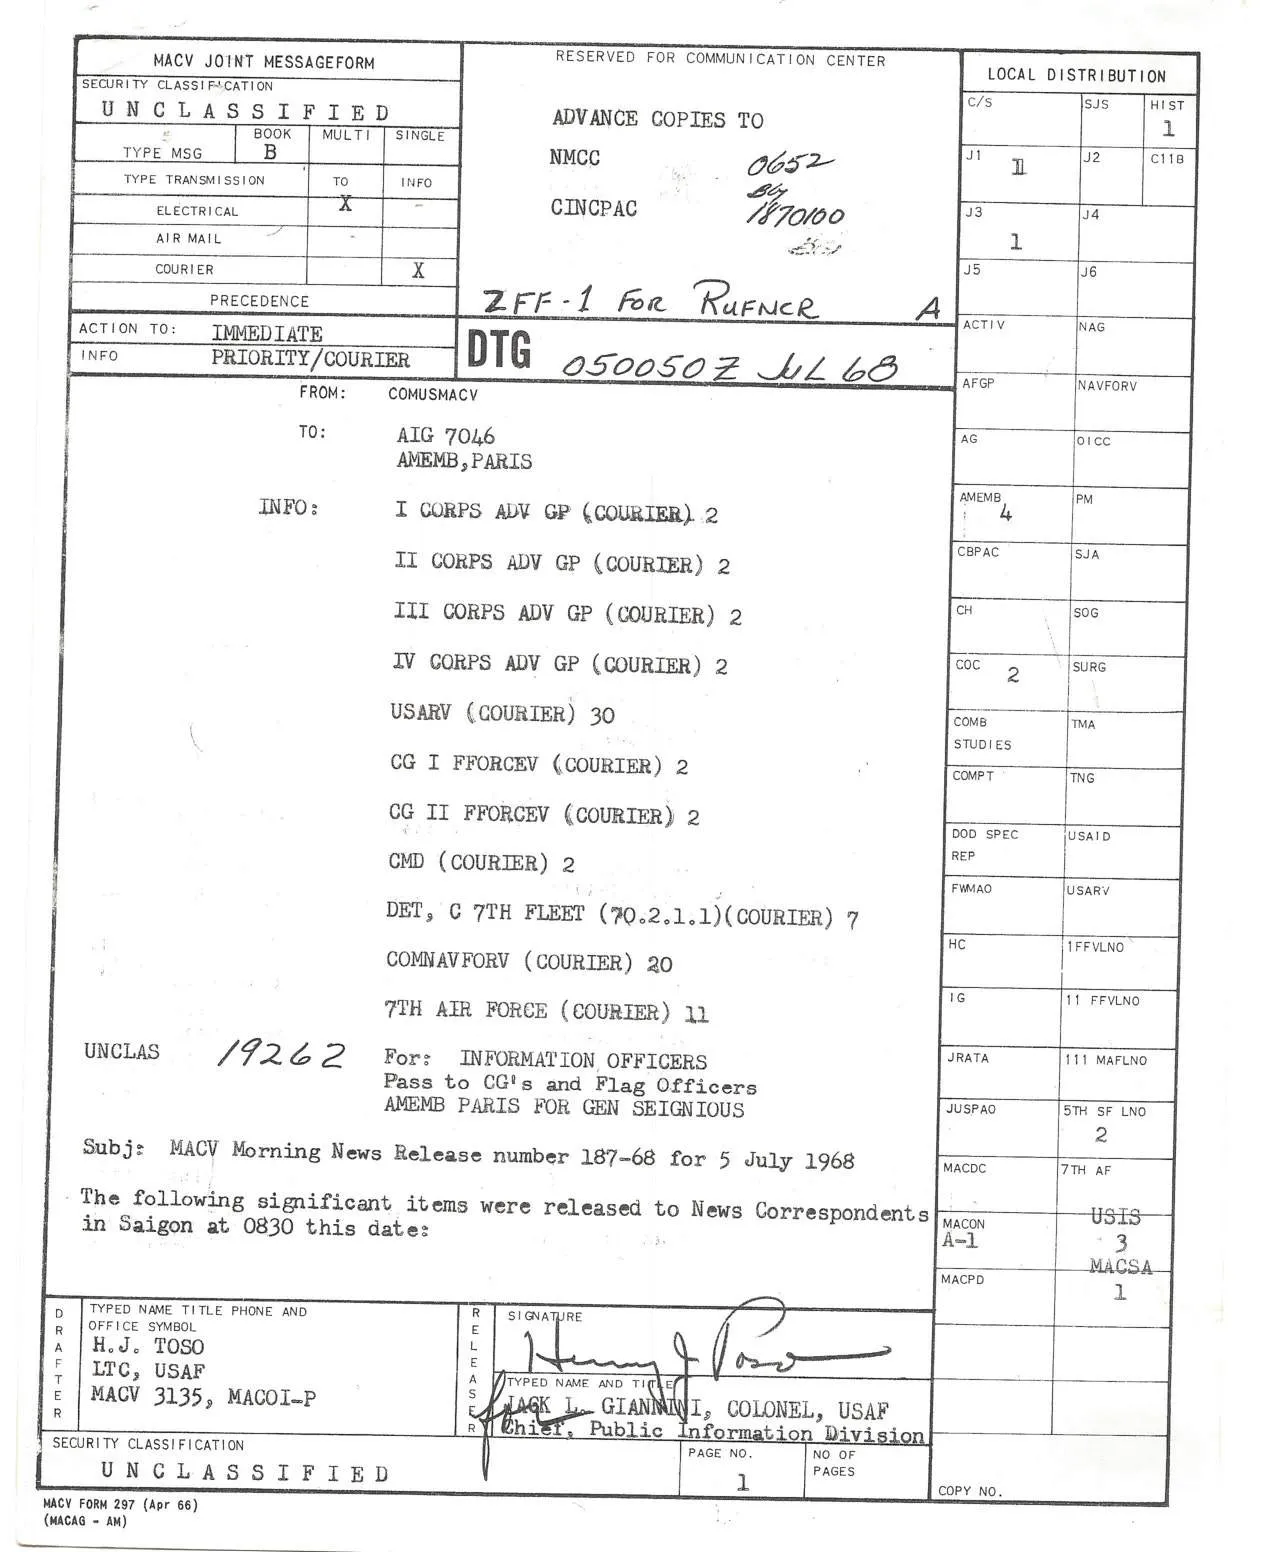 MACV JOINT MESSAGEFORM
SECURITY CLASSIFICATION
UNCLASSIFIED
TYPE MSG
BOOK
B
MULTI
SINGLE
TYPE TRANSMISSION
TO
INFO
ELECTRICAL
X
AIR MAIL
COURIER
X
PRECEDENCE
ACTION TO: IMMEDIATE
INFO PRIORITY/COURIER
RESERVED FOR COMMUNICATION CENTER
ADVANCE COPIES TO
NMCC
CINCPAC
0652
1870100
ZFF-1 FOR RUFNER A
DTG 050050Z JUL 68
FROM: COMUSMACV
TO: AIG 7046
AMEMB, PARIS
INFO: I CORPS ADV GP (COURIER) 2
II CORPS ADV GP (COURIER) 2
III CORPS ADV GP (COURIER) 2
IV CORPS ADV GP (COURIER) 2
USARV (COURIER) 30
CG I FFORCEV (COURIER) 2
CG II FFORCEV (COURIER) 2
CMD (COURIER) 2
DET, C 7TH FLEET (70.2.1.1)(COURIER) 7
COMNAVFORV (COURIER) 20
7TH AIR FORCE (COURIER) 11
UNCLAS 19262 For: INFORMATION OFFICERS
Pass to CG's and Flag Officers
AMEMB PARIS FOR GEN SEIGNIOUS
Subj: MACV Morning News Release number 187-68 for 5 July 1968
The following significant items were released to News Correspondents
in Saigon at 0830 this date:
LOCAL DISTRIBUTION
C/S
SJS
HIST
1
J1
1
J2
C11B
J3
1
J4
J5
J6
ACTIV
NAG
AFGP
NAVFORV
AG
OICC
AMEMB
4
PM
CBPAC
SJA
CH
SOG
COC
2
SURG
COMB
STUDIES
TMA
COMPT
TNG
DOD SPEC
REP
USAID
FWMAO
USARV
HC
1FFVLNO
IG
11 FFVLNO
JRATA
111 MAFLNO
JUSPAO
5TH SF LNO
2
MACDC
7TH AF
MACON
A-1
USIS
3
MACSA
1
MACPD
COPY NO.
DRAFTER
TYPED NAME TITLE PHONE AND
OFFICE SYMBOL
H.J. TOSO
LTC, USAF
MACV 3135, MACOI-P
RELEASER
SIGNATURE
Henry J Toso
for
TYPED NAME AND TITLE
JACK L. GIANNINI, COLONEL, USAF
Chief, Public Information Division
SECURITY CLASSIFICATION
UNCLASSIFIED
PAGE NO.
1
NO OF
PAGES
MACV FORM 297 (Apr 66)
(MACAG - AM)